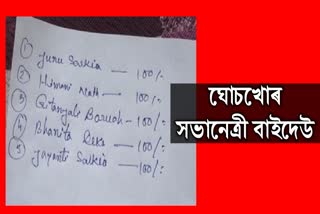 ① Junu Saikia — 100/-
② Himani Nath — 100/-
③ Gitanjali Baruah - 100/-
④ Bhanita Deka — 100/-
⑤ Jayanti Saikia — 100/-
ঘোচখোৰ
সভানেত্ৰী বাইদেউ